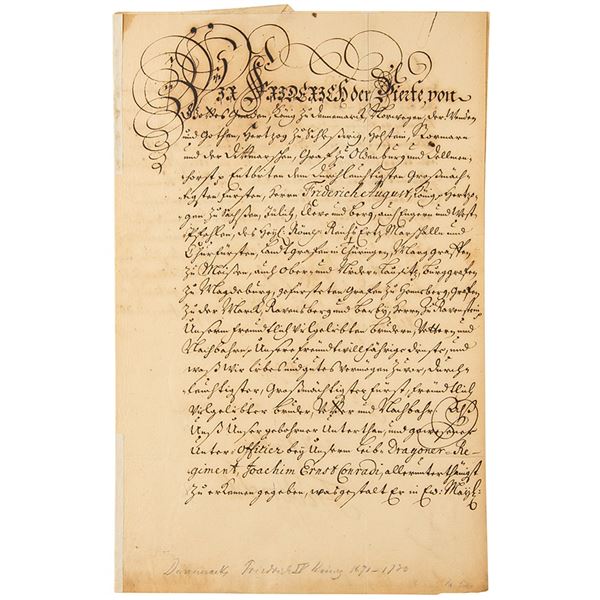 Wir Friderich der Vierte, von
Gottes Gnaden, König zu Dennemarck, Norwegen, der Wenden
und Gothen, Hertzog zu Schleßwig, Holstein, Stormarn
und der Dittmarschen, Graf zu Oldenburg und Dellmen-
horst &c. Entbieten dem Durchleuchtigsten Großmäch-
tigsten Fürsten, Herrn Friderich August, König, Hertzo-
gen zu Sachsen, Jülich, Cleve und Berg, auch Engern und West-
Pfahlen, des Heyl: Röm: Reichs Ertz Marschalln und
Churfürsten, Landtgrafen in Thüringen, Marggraffen
zu Meißen, auch Ober- und Nieder-Laußitz, Burggrafen
zu Magdeburg, gefürsteten Grafen zu Hennberg, Grafen
zu der Marck, Ravensberg und Barby, Herrn zu Ravenstein
Unserm freundtlich vielgeliebten Brudern, Vettern und
Nachbahrn, Unsere freundtwillfährige Dienste, und
waß Wir liebes und gutes vermögen zuvor, Durch-
leuchtigster, Großmächtigster Fürst, freundtlich
Vielgeliebter Bruder, Vetter und Nachbahr. Alß
Unß Unser gebohrner Unterthan, und gewesener
Unter-Officier bey Unserm Leib-Dragoner-Re-
giment, Joachim Ernst Conradi, allerunterthänigst
zu erkennen gegeben, wasgestalt Er in Ew: Mayst:
Friedrich IV König 1671-1730